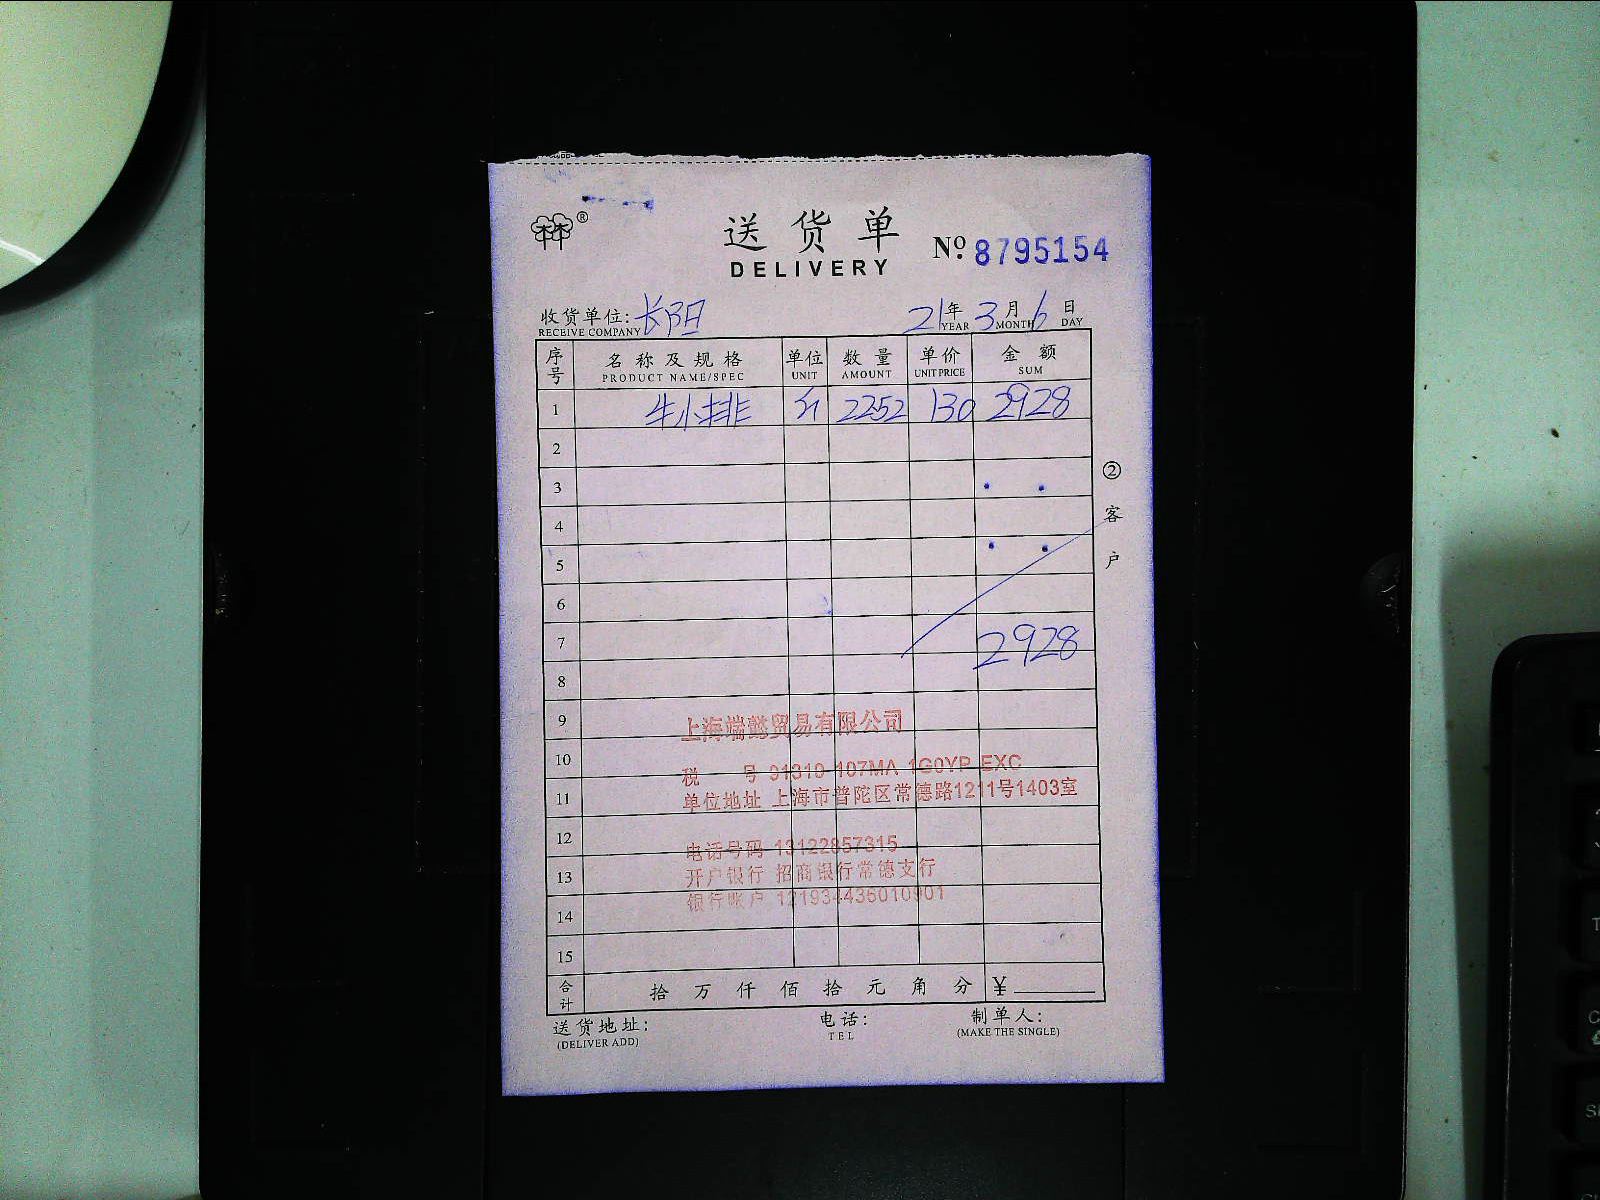 送货单
DELIVERY
№ 8795154
收货单位: 长阳 21年 3月 6日
RECEIVE COMPANY YEAR MONTH DAY
序号 名称及规格 单位 数量 单价 金额
PRODUCT NAME/SPEC UNIT AMOUNT UNIT PRICE SUM
1 牛小排 斤 2252 130 2928
2
3
4
5
6
7 2928
8
9 上海端懿贸易有限公司
10 税 号 91310 107MA 1G0YP EXC
11 单位地址 上海市普陀区常德路1211号1403室
12 电话号码 13122857315
13 开户银行 招商银行常德支行
14 银行账户 121934436010901
15
合计 拾 万 仟 佰 拾 元 角 分 ¥
送货地址: 电话: 制单人:
(DELIVER ADD) TEL (MAKE THE SINGLE)
② 客户